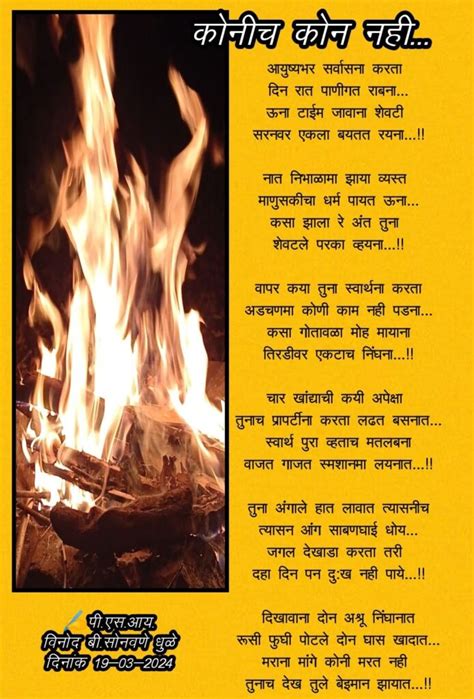 कोनीच कोन नही...
आयुष्यभर सर्वासना करता
दिन रात पाणीगत राबना...
ऊना टाईम जावाना शेवटी
सरनवर एकला बयतत रयना...!!
नात निभाळामा झाया व्यस्त
माणुसकीचा धर्म पायत ऊना...
कसा झाला रे अंत तुना
शेवटले परका व्हयना...!!
वापर कया तुना स्वार्थना करता
अडचणमा कोणी काम नही पडना...
कसा गोतावळा मोह मायाना
तिरडीवर एकटाच निंघना...!!
चार खांद्याची कयी अपेक्षा
तुनाच प्रापर्टीना करता लढत बसनात...
स्वार्थ पुरा व्हताच मतलबना
वाजत गाजत स्मशानमा लयनात...!!
तुना अंगाले हात लावात त्यासनीच
त्यासन आंग साबणघाई धोय...
जगल देखाडा करता तरी
दहा दिन पन दु:ख नही पाये...!!
दिखावाना दोन अश्रू निंघानात
रूसी फुघी पोटले दोन घास खादात...
मराना मांगे कोनी मरत नही
तुनाच देख तुले बेइमान झायात...!!
पी.एस.आय.
विनोद बी.सोनवणे धुळे
दिनांक 19-03-2024